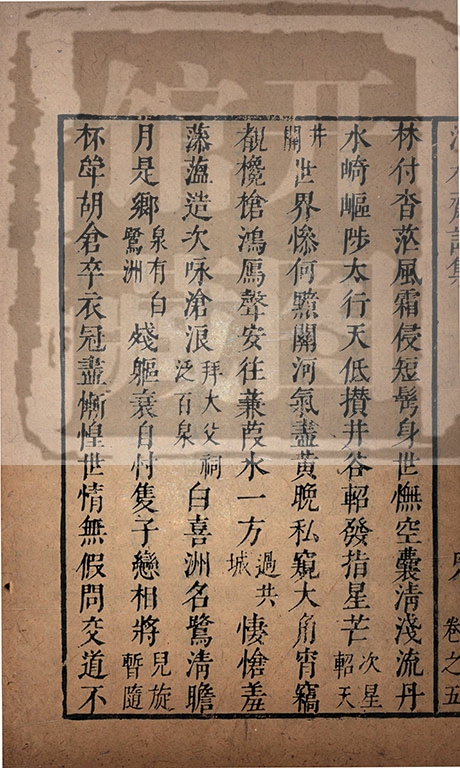 林付杳茫風霜侵短髩身世憮空囊淸淺流丹
水崎嶇陟太行天低攅井谷軺發指星芒次星軺天
井關世界慘何黯關河氣盡黃晚私窺大角宵竊
覩欃槍鴻鴈聲安往蒹葭水一方過共城悽愴羞
藻薀造次咏滄浪拜大父祠泛百泉白喜洲名鷺淸瞻
月是鄉泉有白鷺洲殘軀衰自付隻子戀相將兒旋暫隨
杯牟胡倉卒衣冠盡慚惶世情無假問交道不
卷之五